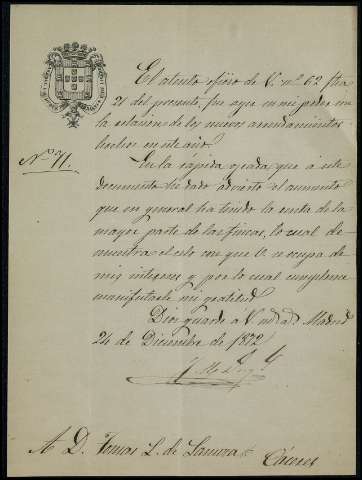 El atento oficio de V. nº 62 fha
21 del presente, fue ayer en mi poder con
la relacion de los nuevos arrendamientos
hechos en este año.
Nº 71.
En la rápida ojeada, que á este
documento he dado advierto el aumento
que en general ha tenido la renta de la
mayor parte de las fincas, lo cual de-
muestra el celo con que V. se ocupa de
mis intereses y por lo cual cumpleme
manifestarle mi gratitud.
Dios guarde á V. m. a. Madrid
24 de Diciembre de 1872
A D. Tomas L. de Sanura
Cáceres